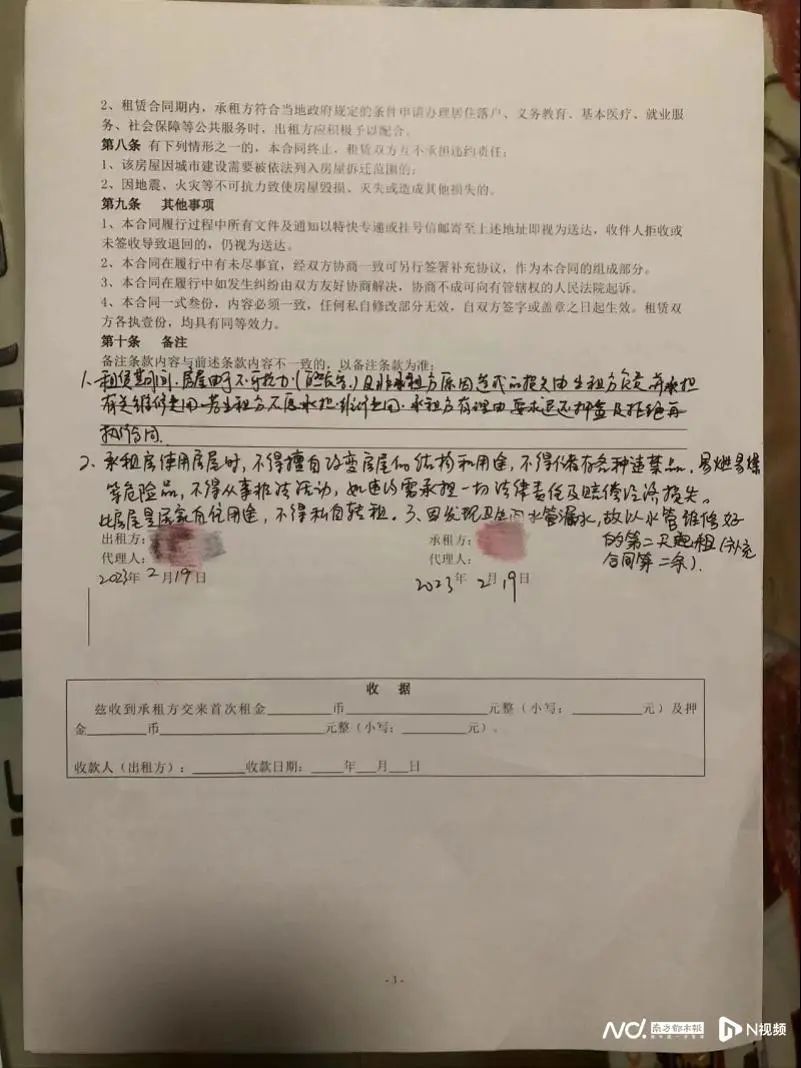 2、租赁合同期内，承租方符合当地政府规定的条件申请办理居住落户、义务教育、基本医疗、就业服
务、社会保障等公共服务时，出租方应积极予以配合。
第八条 有下列情形之一的，本合同终止，租赁双方互不承担违约责任：
1、该房屋因城市建设需要被依法列入房屋拆迁范围的；
2、因地震、火灾等不可抗力致使房屋毁损、灭失或造成其他损失的。
第九条 其他事项
1、本合同履行过程中所有文件及通知以特快专递或挂号信邮寄至上述地址即视为送达，收件人拒收或
未签收导致退回的，仍视为送达。
2、本合同在履行中有未尽事宜，经双方协商一致可另行签署补充协议，作为本合同的组成部分。
3、本合同在履行中如发生纠纷由双方友好协商解决，协商不成可向有管辖权的人民法院起诉。
4、本合同一式叁份，内容必须一致，任何私自修改部分无效，自双方签字或盖章之日起生效。租赁双
方各执壹份，均具有同等效力。
第十条 备注
备注条款内容与前述条款内容不一致的，以备注条款为准：
1、租赁期间，房屋由于不可抗力（自然灾害）及非承租方原因造成的损失由出租方负责并承担
有关维修费用，若出租方不愿承担维修费用，承租方有理由要求退还押金及拒绝再
执行合同
2、承租房使用房屋时，不得擅自改变房屋的结构和用途，不得储存各种违禁品，易燃易爆
等危险品，不得从事非法活动，如违约需承担一切法律责任及赔偿经济损失。
此房屋是居家自住用途，不得私自转租。3、因发现卫生间水管漏水，故以水管维修好
的第二天起租（补充
合同第二条）.
出租方： 承租方：
代理人： 代理人：
2023年2月19日 2023年2月19日
收 据
兹收到承租方交来首次租金 币 元整（小写： 元）及押
金 币 元整（小写： 元）。
收款人（出租方）： 收款日期： 年 月 日
- 3 -
南方都市报
N视频